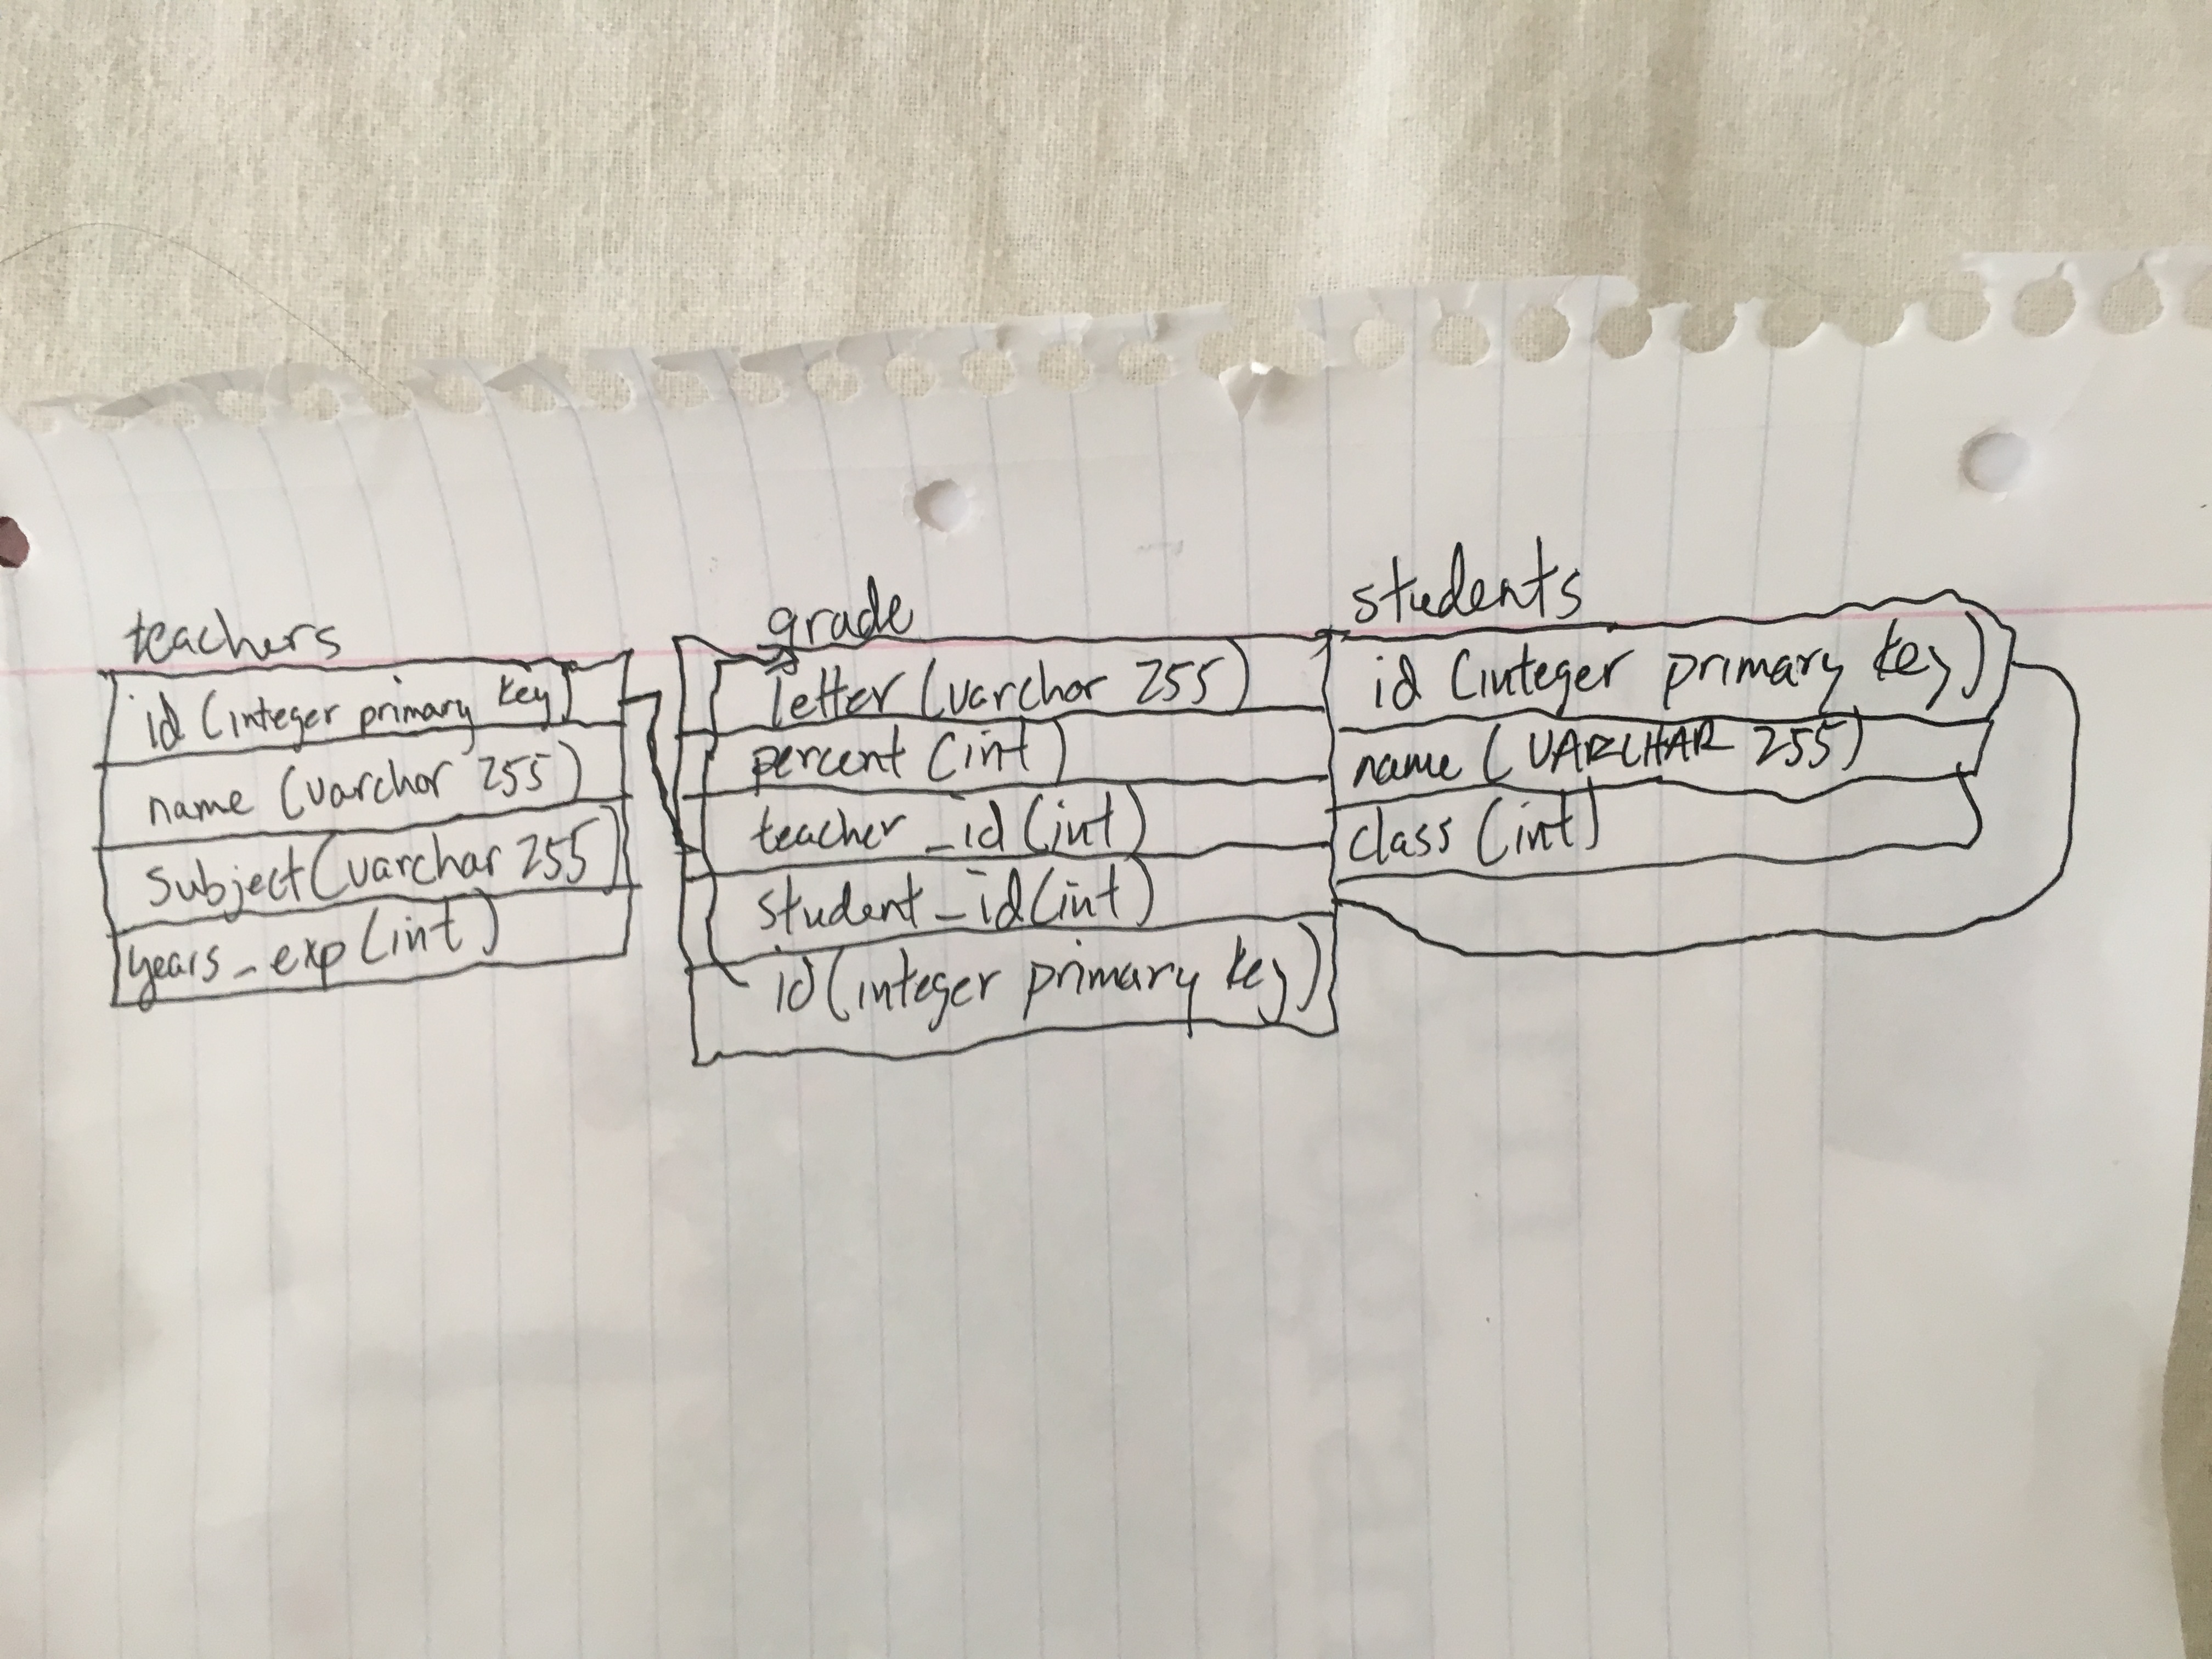 teachers
id (integer primary key)
name (varchar 255)
subject (varchar 255)
years_exp (int)
grade
letter (varchar 255)
percent (int)
teacher_id (int)
student_id (int)
id (integer primary key)
students
id (integer primary key)
name (VARCHAR 255)
class (int)